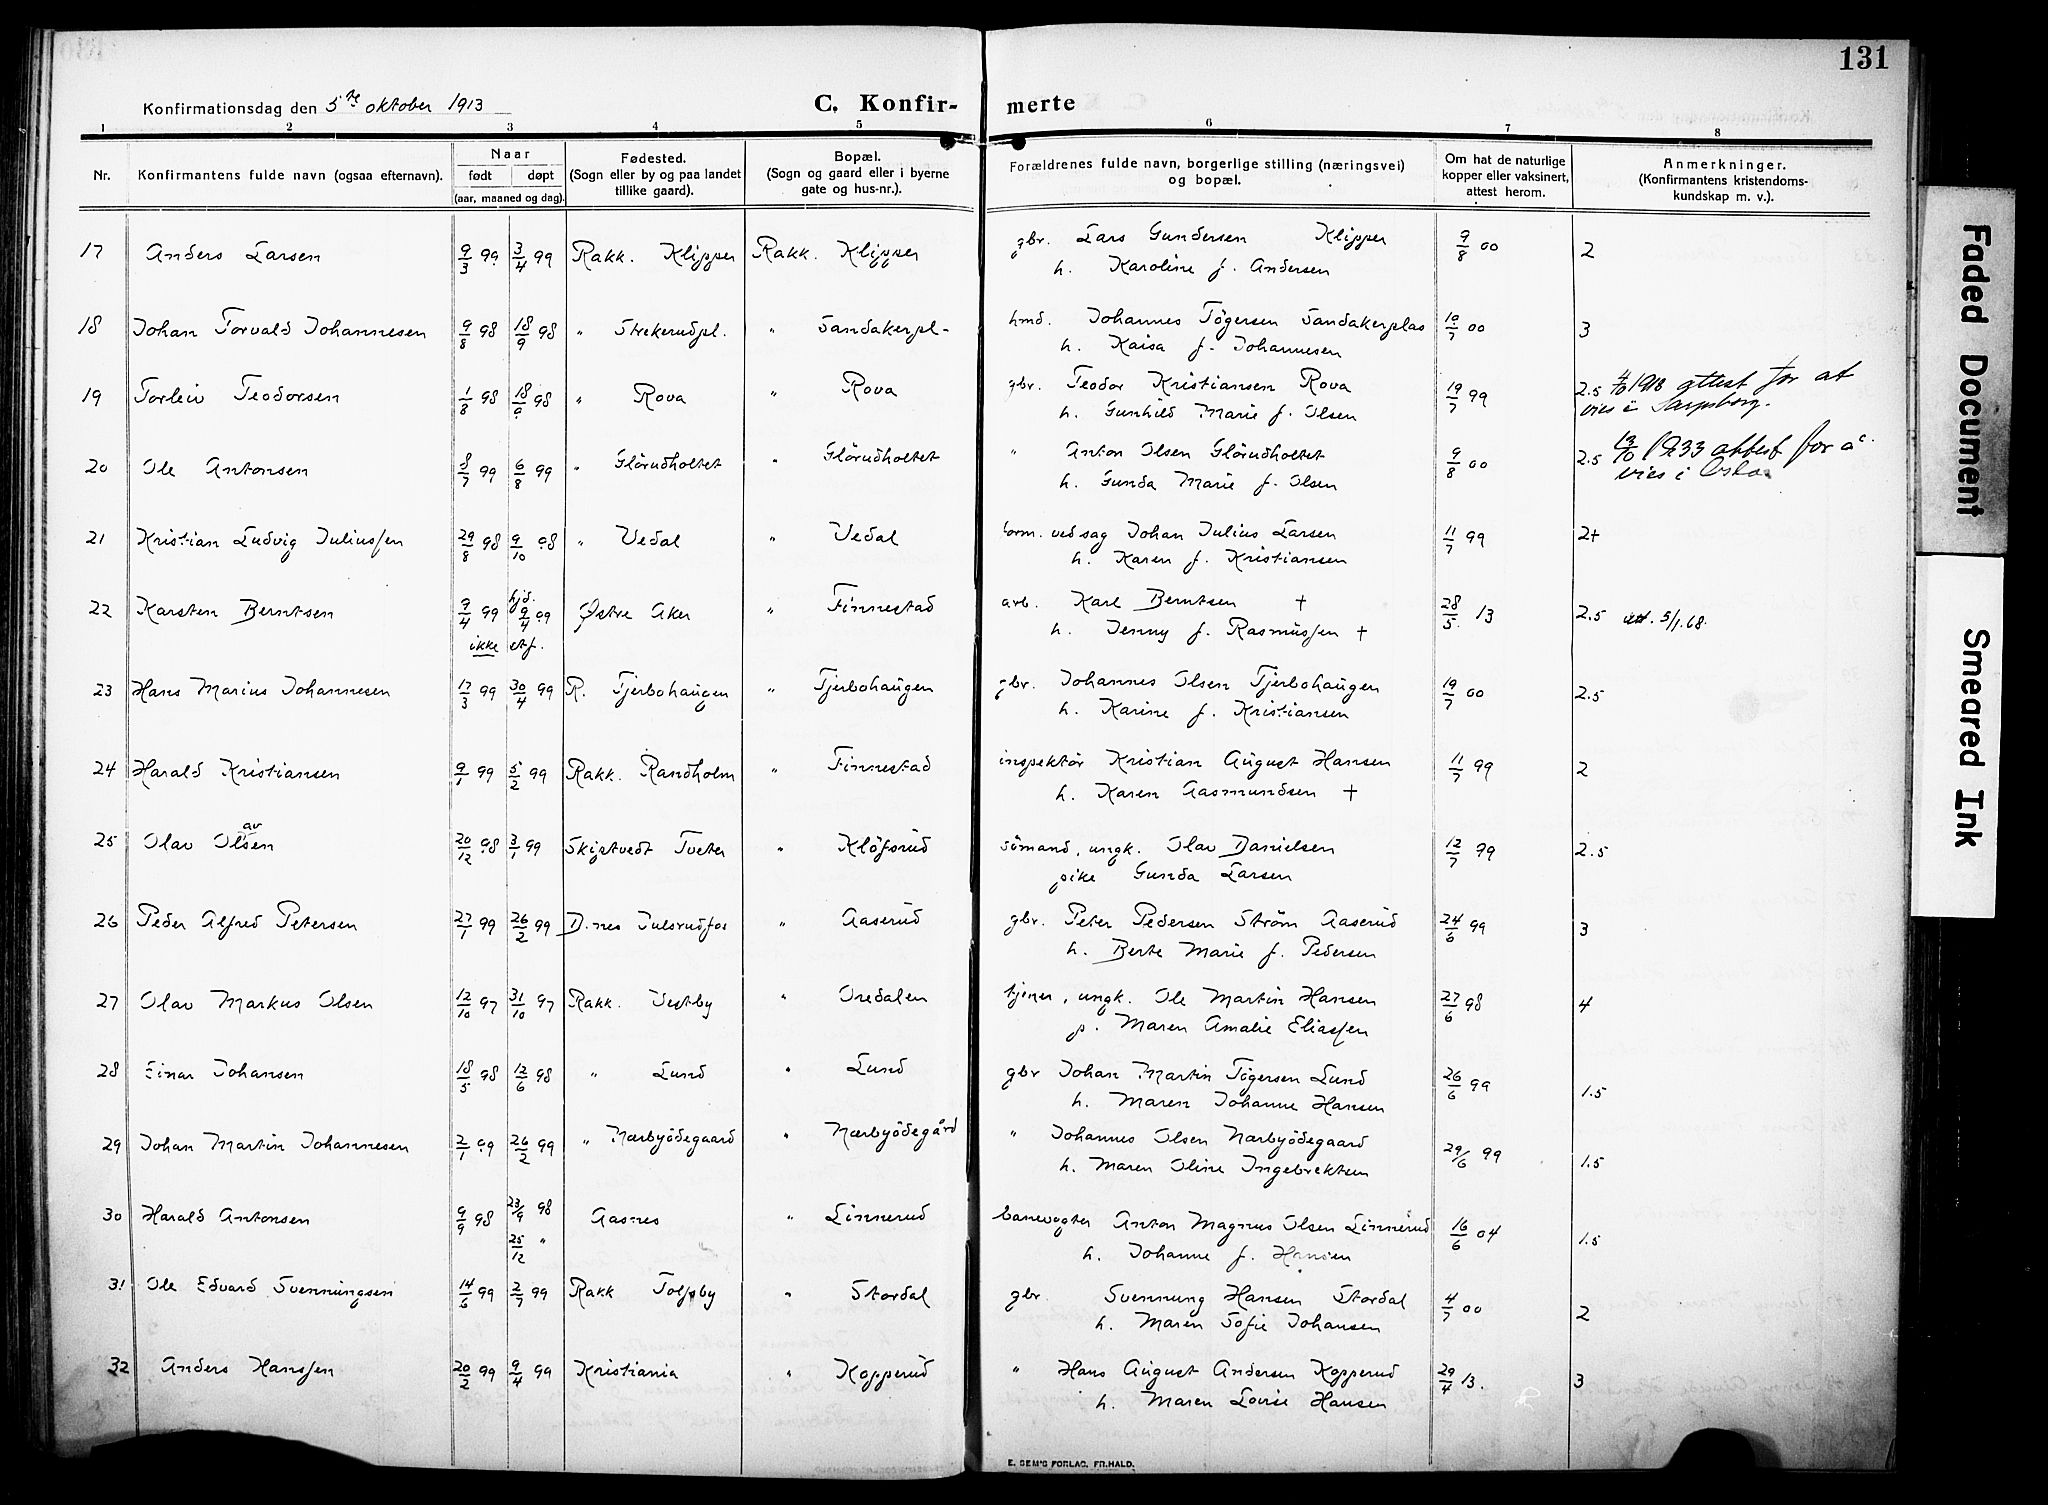 131
Konfirmationsdag den 5te oktober 1913
C. Konfir- merte
1 2 3 4 5 6 7 8
Nr.
Konfirmantens fulde navn (ogsaa efternavn).
Naar
født døpt
(aar, maaned og dag).
Fødested.
(Sogn eller by og paa landet
tillike gaard).
Bopæl.
(Sogn og gaard eller i byerne
gate og hus-nr.).
Forældrenes fulde navn, borgerlige stilling (næringsvei)
og bopæl.
Om hat de naturlige
kopper eller vaksinert,
attest herom.
Anmerkninger.
(Konfirmantens kristendoms-
kundskap m. v.).
17 Anders Larsen 9/3 99 3/4 99 Rakk. Klipper Rakk. Klipper gbr. Lars Gundersen Klipper 9/8 00 2
h. Karoline f. Andersen
18 Johan Torvald Johannesen 9/8 98 18/9 98 " Strekerudpl. " Sandakerpl- hmd. Johannes Tögersen Sandakerplas 10/7 00 3
h. Kaisa f. Johannesen
19 Torleiv Teodorsen 1/8 98 18/9 98 " Rova " Rova gbr. Teodor Kristiansen Rova 19/7 99 2.5 4/10 1918 attest for at
h. Gunhild Marie f. Olsen vies i Sarpsborg.
20 Ole Antonsen 8/7 99 6/8 99 " Glörudholtet " Glörudholtet " Anton Olsen Glörudholtet 9/8 00 2.5 13/10 1933 attest for a
h. Gunda Marie f. Olsen vies i Oslo.
21 Kristian Ludvig Juliussen 29/8 98 9/10 98 " Vedal " Vedal form. ved sag Johan Julius Larsen 11/7 99 2+
h. Karen f. Kristiansen
22 Karsten Berntsen 9/4 99 hjd. 9/4 99 Østre Aker " Finnestad arb. Karl Berntsen + 28/5 13 2.5 utt. 5/1.68.
ikke stf. h. Jenny f. Rasmussen +
23 Hans Marius Johannesen 17/3 99 30/4 99 R. Tjerbohaugen " Tjerbohaugen gbr. Johannes Olsen Tjerbohaugen 19/7 00 2.5
h. Karine f. Kristiansen
24 Harald Kristiansen 9/1 99 5/2 99 Rakk. Randholm " Finnestad inspektör Kristian August Hansen 11/7 99 2
h. Karen Aasmundsen +
25 Olav Olsen av 20/12 98 3/1 99 Skiptvedt Tveter " Klöfsrud sömand, ungk. Olav Danielsen 12/7 99 2.5
pike Gunda Larsen
26 Peder Alfred Petersen 27/1 99 26/2 99 D.nes Julsrudfos " Aaserud gbr. Peter Pedersen Ström Aaserud 24/6 99 3
h. Berte Marie f. Pedersen
27 Olav Markus Olsen 12/10 97 31/10 97 Rakk. Vestby " Oredalen tjener, ungk. Ole Martin Hansen 27/6 98 4
p. Maren Amalie Eliassen
28 Einar Johansen 18/5 98 12/6 98 " Lund " Lund gbr Johan Martin Tögersen Lund 26/6 99 1.5
h. Maren Johanne Hansen
29 Johan Martin Johannesen 2/1 99 26/2 99 " Nærbyödegaard " Nærbyödegård " Johannes Olsen Nærbyödegaard 29/6 99 1.5
h. Maren Oline Ingebrektsen
30 Harald Antonsen 9/9 98 23/9 98 Aasnes " Linnerud banevogter Anton Magnus Olsen Linnerud 16/6 04 1.5
25/12 " h. Johanne f. Hansen
31 Ole Edvard Svenningsen 14/6 99 2/7 99 Rakk Tolfsby " Stordal gbr. Svennung Hansen Stordal 4/7 00 2
h. Maren Sofie Johansen
32 Anders Hanssen 20/2 99 9/4 99 Kristiania " Kopperud " Hans August Andersen Kopperud 29/4 13. 3
h. Maren Lovise Hansen
E. SEM'S FORLAG. FR.HALD.
Faded Document
Smeared Ink